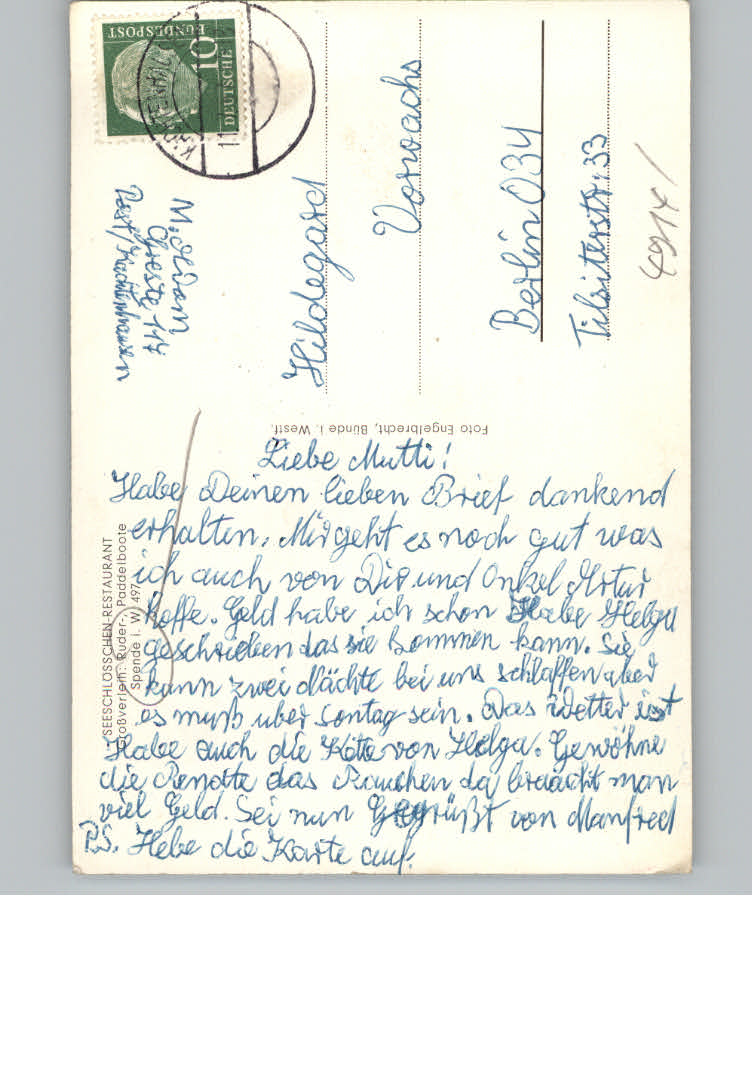 Liebe Mutti!
Habe Deinen lieben Brief dankend
erhalten. Mir geht es noch gut was
ich auch von Dir und Onkel Artur
hoffe. Geld habe ich schon Habe Helga
geschrieben das sie kommen kann. Sie
kann zwei Nächte bei uns schlaffen aber
es muß uber Sontag sein. Das Wetter ist
Habe auch die Kate von Helga. Gewöhne
die Renate das Rauchen da braucht man
viel Geld. Sei nun Gegrüßt von Manfred
P.S. Hebe die Karte auf.
SEESCHLÖSSCHEN-RESTAURANT
Großverleih: Ruder-, Paddelboote
Spende i. W. 497
Foto Engelbrecht, Bünde i. Westf.
M. Adam
117
Post/
Hildegard
Vorwachs
Berlin O34
Tilsiterstr. 33
4914/
DEUTSCHE
BUNDESPOST
10